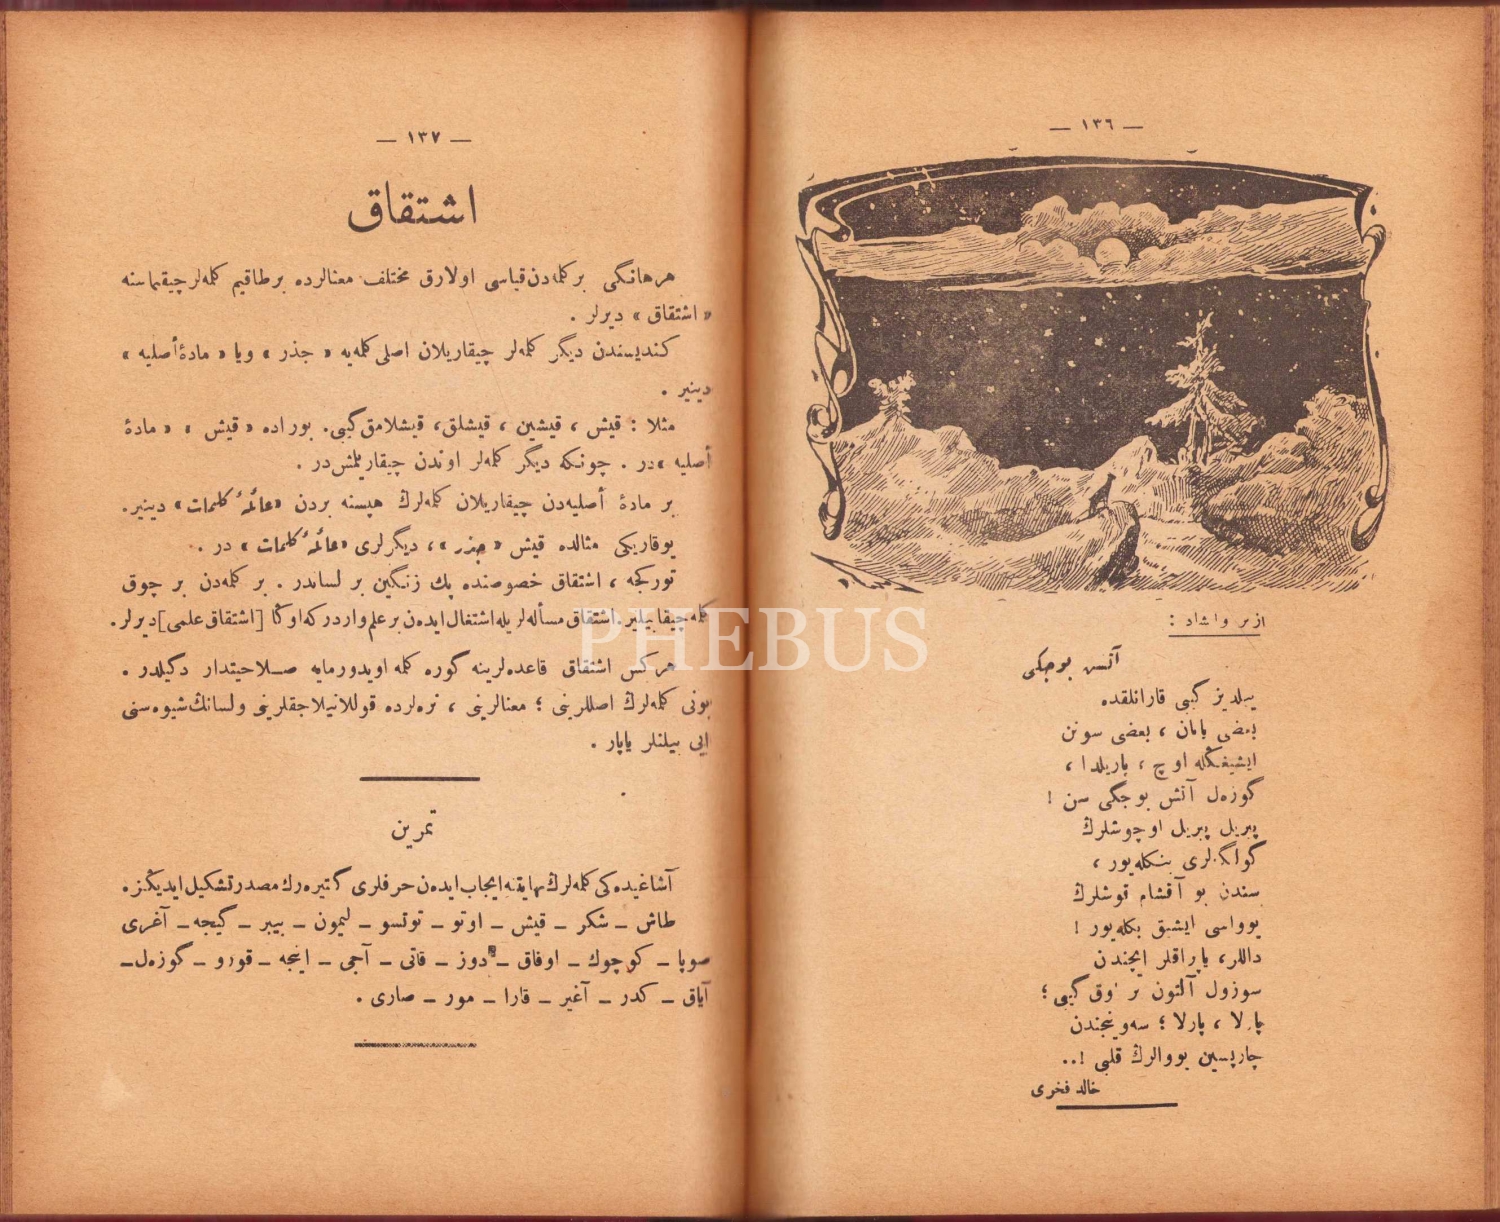 — ١٣٦ —
ازبر وانشاد :
آتش بوجكی
ییلدیز گبی قارانلقده
بعضی یانان ، بعضی سونن
ایشیغڭله اوچ ، پاریلدا ،
گوزەل آتش بوجگی سن !
پیریل پیریل اوچوشلرڭ
گولگەلری بنكلەیور ،
سندن بو آقشام قوشلرڭ
یوواسی ایشیق بكلەیور !
داللر، یاپراقلر ایچندن
سوزول آلتون بر اوق گبی ؛
پارلا ، پارلا ؛ سەوینجندن
چارپسین یووالرڭ قلبی !..
خالد فخری
— ١٣٧ —
اشتقاق
هرهانگی بر كلمەدن قیاسی اولارق مختلف معنالرده برطاقیم كلمەلر چیقماسنه
« اشتقاق » دیرلر .
كندیسندن دیگر كلمەلر چیقاریلان اصلی كلمەیه « جذر » ویا « مادۀ أصلیه »
دینیر .
مثلا : قیش ، قیشین ، قیشلق، قیشلامق گبی. بوراده « قیش » « مادۀ
أصلیه »در . چونكه دیگر كلمەلر اوندن چیقاریلمشدر .
بر مادۀ أصلیەدن چیقاریلان كلمەلرڭ هپسنه بردن «عائلۀ كلمات» دینیر.
یوقاریكی مثالده قیش « جذر »، دیگرلری «عائلۀ كلمات » در .
توركجه ، اشتقاق خصوصنده پك زنگین بر لساندر . بر كلمەدن بر چوق
كلمه چیقابیلیر. اشتقاق مسألەلریله اشتغال ایدەن بر علم واردر كه اوڭا [اشتقاق علمی] دیرلر.
هركس اشتقاق قاعدەلرینه گوره كلمه اویدورمایه صلاحیتدار دگیلدر .
بونی كلمەلرڭ اصللرینی ؛ معنالرینی ، نرەلرده قوللانیلاجقلرینی ولسانڭ شیوەسنی
ایی بیلنلر یاپار .
تمرین
آشاغیدەكی كلمەلرڭ نهایتنه ایجاب ایدەن حرفلری گتیرەرك مصدر تشكیل ایدیڭز.
طاش – شكر – قیش – اوتو – توتسو – لیمون – بیبر – گیجه – آغری
صوپا – كوچوك – اوفاق – دوز – قاتی – آجی – اینجه – قورو – گوزەل –
آیاق – كدر – آغیر – قارا – مور – صاری .
PHEBUS